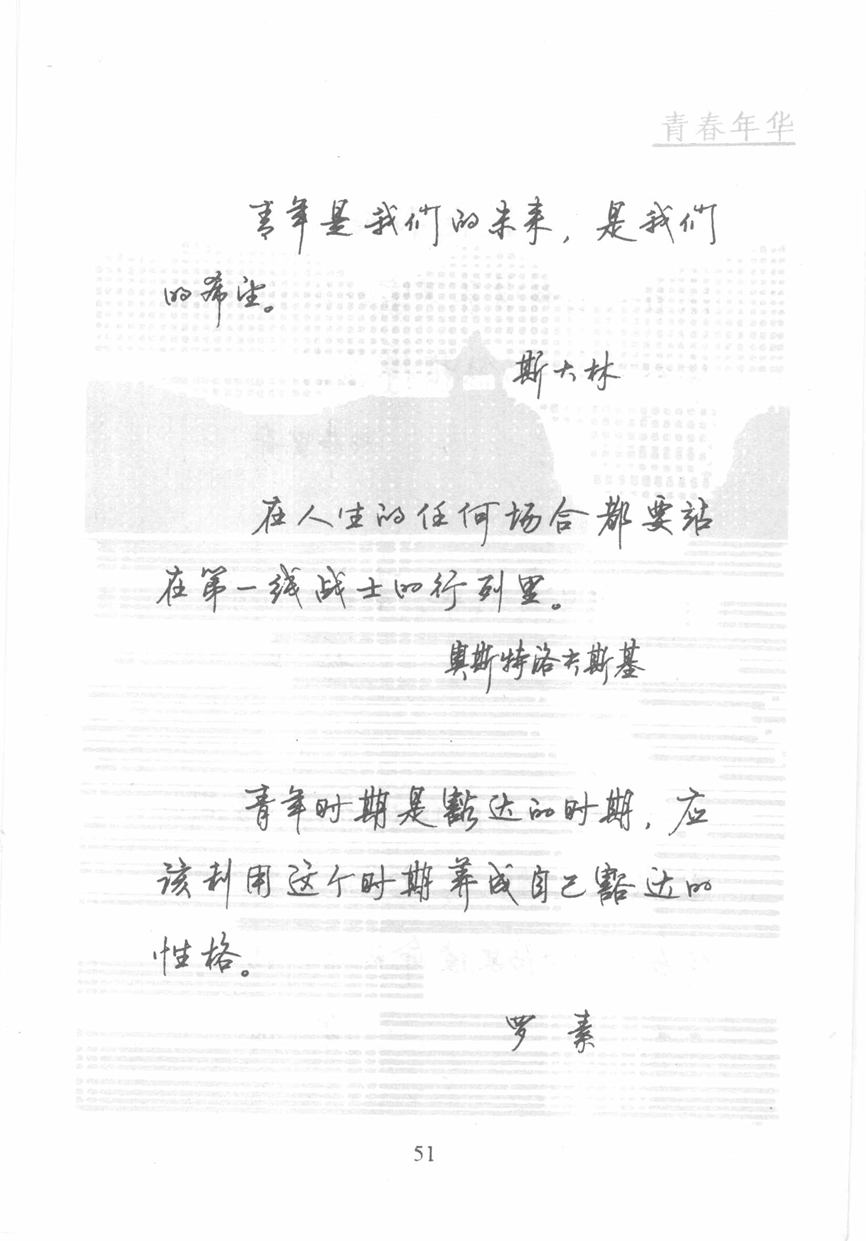 青春年华
青年是我们的未来，是我们
的希望。
斯大林
在人生的任何场合都要站
在第一线战士的行列里。
奥斯特洛夫斯基
青年时期是豁达的时期，应
该利用这个时期养成自己豁达的
性格。
罗素
51